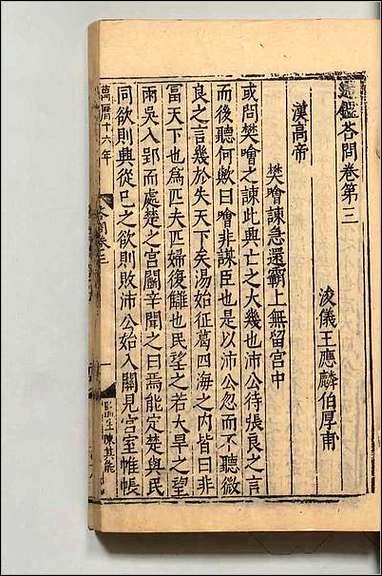 通鑑荅問卷第三
浚儀王應麟伯厚甫
漢高帝
樊噲諫急還霸上無留宫中
或問樊噲之諫此興亡之大幾也沛公待張良之言
而後聽何歟曰噲非謀臣也是以沛公忽而不聽微
良之言幾於失天下矣湯始征葛四海之内皆曰非
冨天下也為匹夫匹婦復讎也民望之若大旱之望
雨吳入郢而處楚之宫鬬辛聞之曰焉能定楚與民
同欲則興從已之欲則敗沛公始入關見宫室帷帳
萬曆十六年
荅問卷三
一
監生陳其